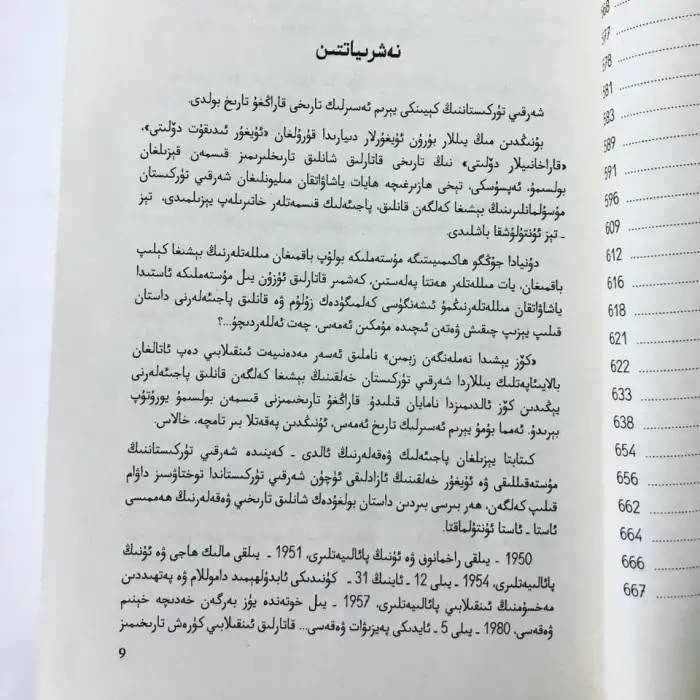 نەشرىياتتىن
شەرقىي تۈركىستاننىڭ كېيىنكى يېرىم ئەسىرلىك تارىخى قاراڭغۇ تارىخ بولدى.
بۇنىڭدىن مىڭ يىللار بۇرۇن ئۇيغۇرلار دىيارىدا قۇرۇلغان «ئۇيغۇر ئىدىقۇت دۆلىتى»،
«قاراخانىيلار دۆلىتى» نىڭ تارىخى قاتارلىق شانلىق تارىخلىرىمىز قىسمەن قېزىلغان
بولسىمۇ، ئەپسۇسكى، تېخى ھازىرغىچە ھايات ياشاۋاتقان مىليونلىغان شەرقىي تۈركىستان
مۇسۇلمانلىرىنىڭ بېشىغا كەلگەن قانلىق، پاجىئەلىك قىسمەتلەر خاتىرىلەپ يېزىلمىدى، تېز
- تېز ئۇنتۇلۇشقا باشلىدى.
دۇنيادا جۇڭگو ھاكىمىيىتىگە مۇستەملىكە بولۇپ باقمىغان مىللەتلەرنىڭ بېشىغا كېلىپ
باقمىغان، يات مىللەتلەر ھەتتا پەلەستىن، كەشمىر قاتارلىق ئۇزۇن يىل مۇستەملىكە ئاستىدا
ياشاۋاتقان مىللەتلەرنىڭمۇ ئىشەنگۈسى كەلمىگۈدەك زۇلۇم ۋە قانلىق پاجىئەلەرنى داستان
قىلىپ يېزىپ چىقىش ۋەتەن ئىچىدە مۇمكىن ئەمەس، چەت ئەللەردىچۇ...؟
«كۆز يېشىدا نەملەنگەن زېمىن» ناملىق ئەسەر مەدەنىيەت ئىنقىلابىي دەپ ئاتالغان
بالايىئاپەتلىك يىللاردا شەرقىي تۈركىستان خەلقىنىڭ بېشىغا كەلگەن قانلىق پاجىئەلەرنى
يېڭىدىن كۆز ئالدىمىزدا نامايان قىلىدۇ. قاراڭغۇ تارىخىمىزنى قىسمەن بولسىمۇ يورۇتۇپ
بېرىدۇ. ئەمما بۇمۇ يېرىم ئەسىرلىك تارىخ ئەمەس، ئۇنىڭدىن پەقەتلا بىر تامچە، خالاس.
كىتابتا يېزىلغان پاجىئەلىك ۋەقەلەرنىڭ ئالدى - كەينىدە شەرقىي تۈركىستاننىڭ
مۇستەقىللىقى ۋە ئۇيغۇر خەلقىنىڭ ئازادلىقى ئۈچۈن شەرقىي تۈركىستاندا توختاۋسىز داۋام
قىلىپ كەلگەن، ھەر بىرسى بىردىن داستان بولغۇدەك شانلىق تارىخىي ۋەقەلەرنىڭ ھەممىسى
ئاستا - ئاستا ئۇنتۇلماقتا.
1950 - يىلقى راخمانوف ۋە ئۇنىڭ پائالىيەتلىرى، 1951 - يىلقى مالىك ھاجى ۋە ئۇنىڭ
پائالىيەتلىرى، 1954 - يىلى 12 - ئاينىڭ 31 - كۈنىدىكى ئابدۇلھېمىد داموللام ۋە پەتھىددىن
مەخسۇمنىڭ ئىنقىلابىي پائالىيەتلىرى، 1957 - يىل خوتەندە يۈز بەرگەن خەدىچە خېنىم
ۋەقەسى، 1980 - يىلى 5 - ئايدىكى پەيزىۋات ۋەقەسى... قاتارلىق ئىنقىلابىي كۈرەش تارىخىمىز
9
577
578
581
583
589
591
596
609
612
616
618
621
622
633
638
654
656
662
664
666
667